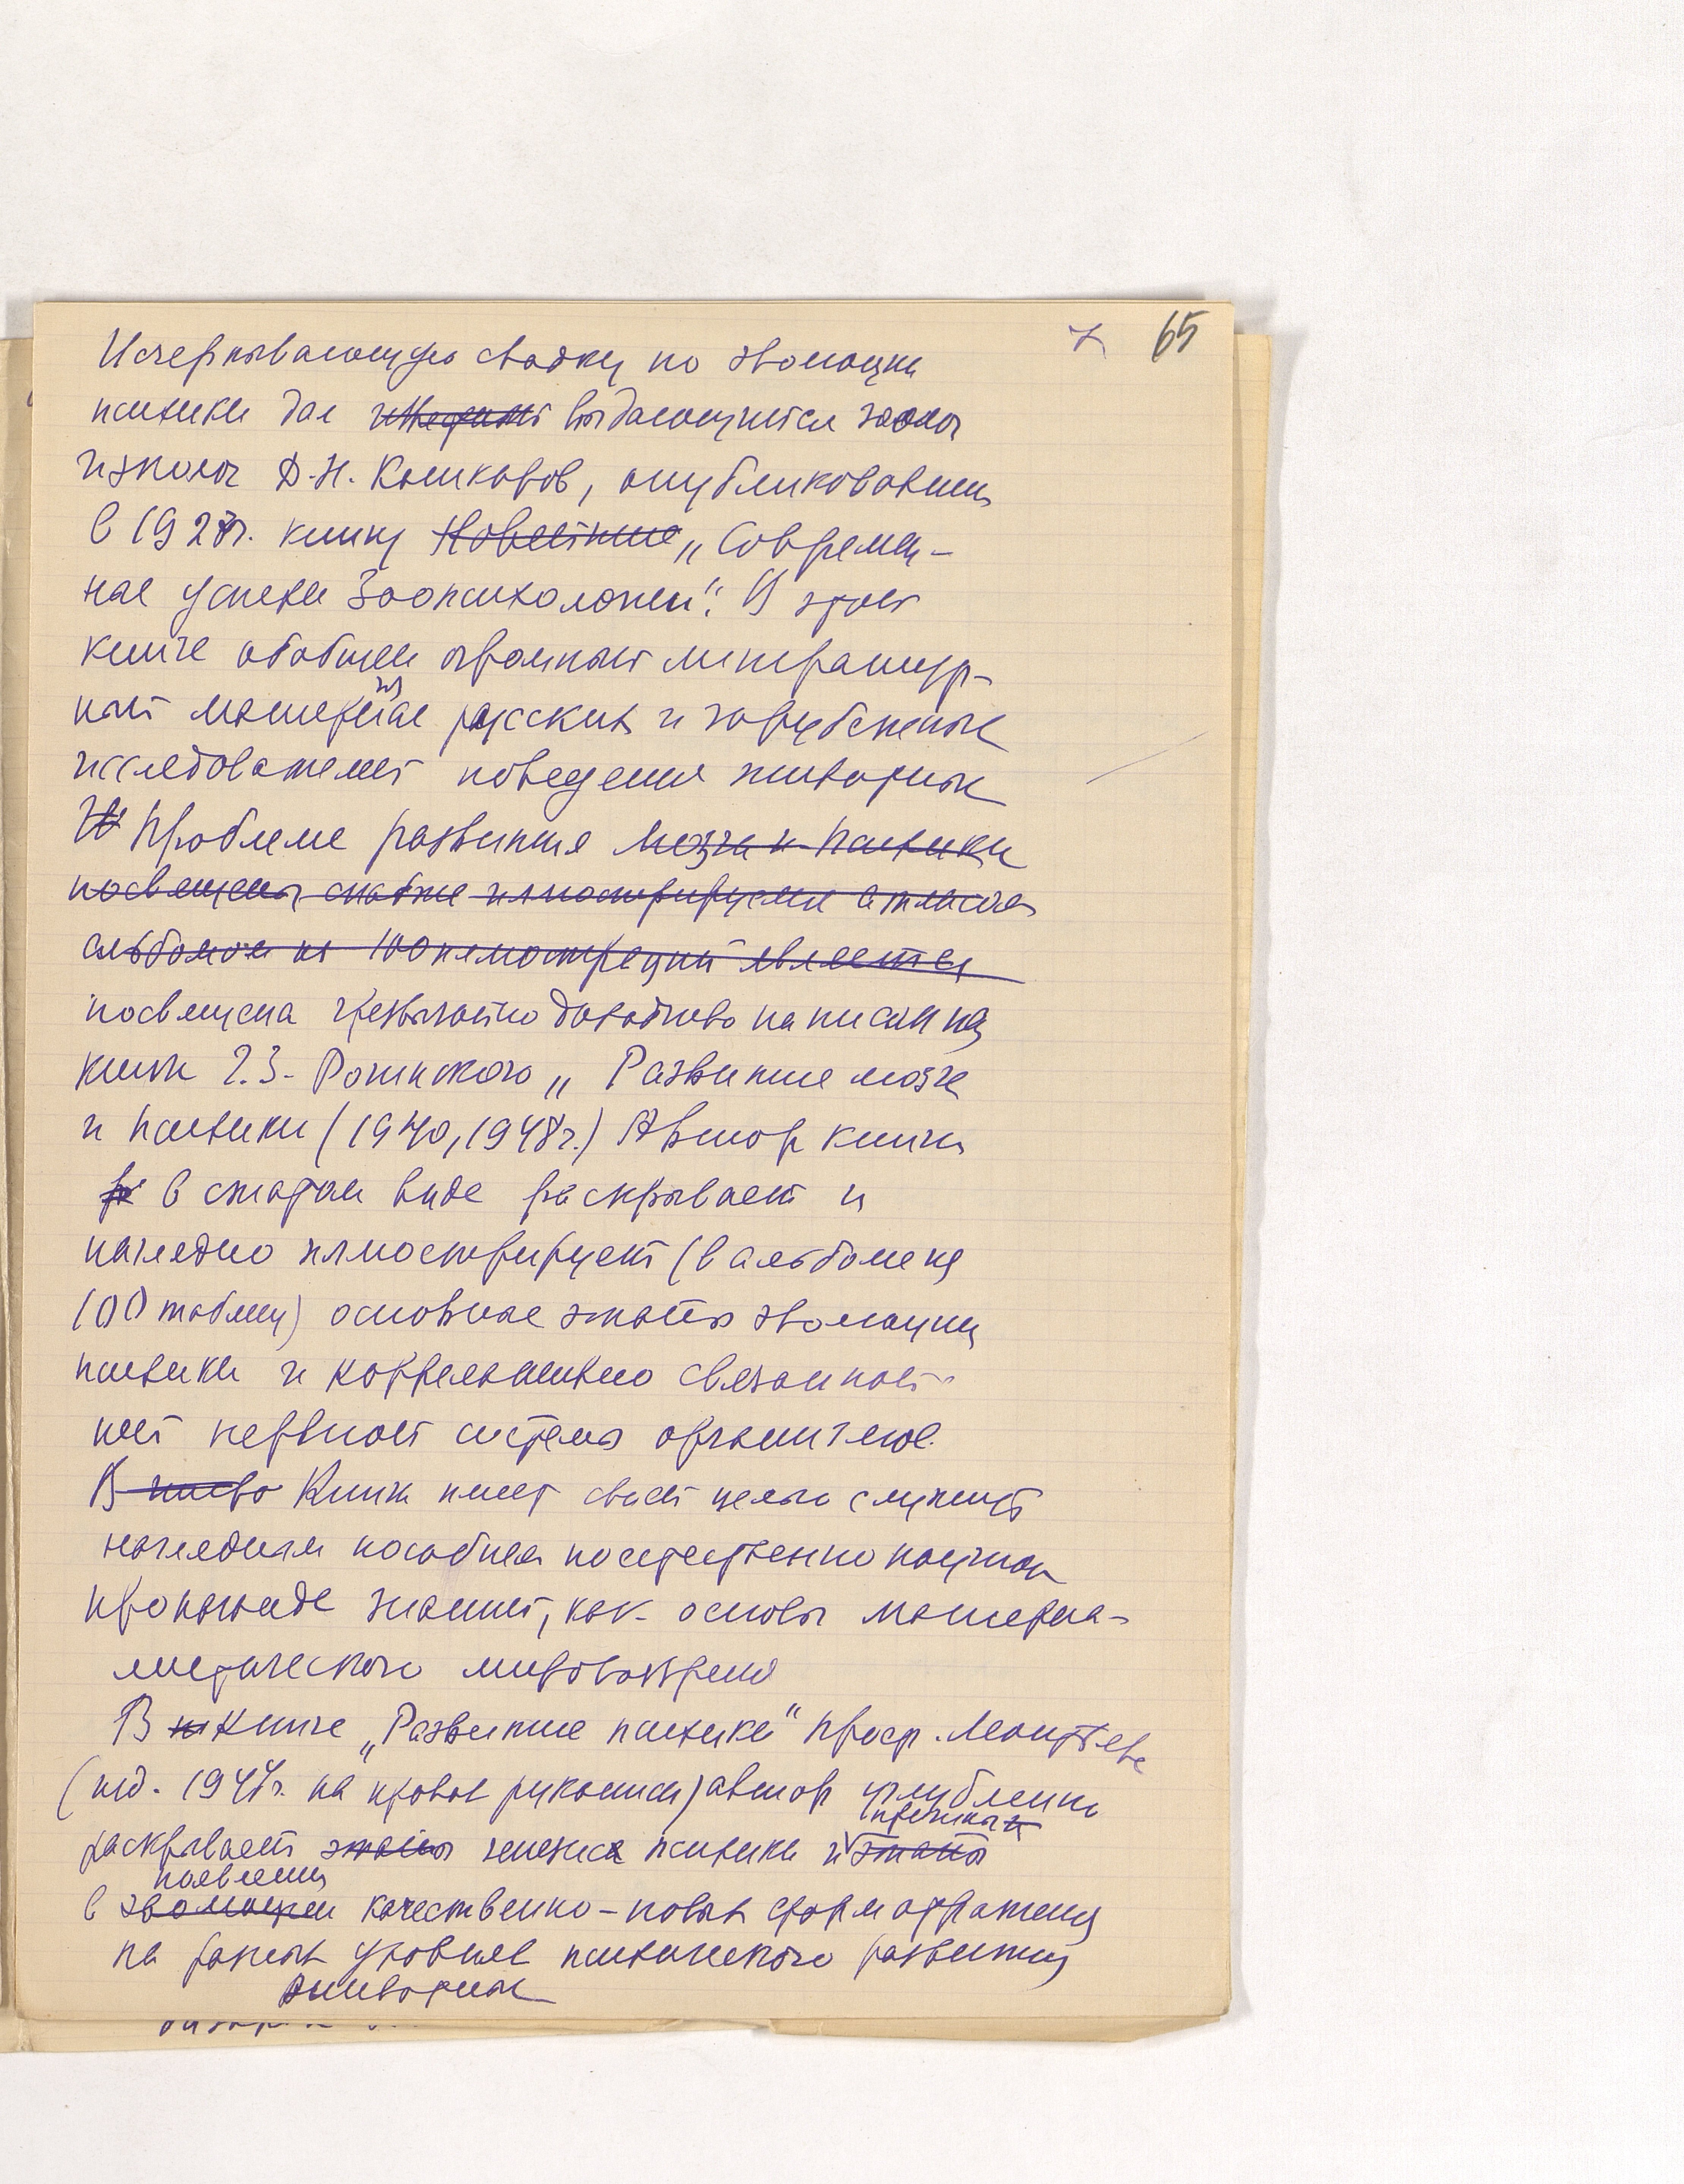 7 65
Исчерпывающую сводку по эволюции
психики дал выдающийся зоолог
и эколог Д.Н. Кашкаров, опубликовавший
в 1928г. книгу Новейшие „Современ-
ные успехи Зоопсихологии“. В этой
книге обобщен огромный литератур-
ный материал русских и зарубежных
исследователей поведения животных
Проблеме развития мозга и психики
посвящены снабже иллюстрируемая атласом
альбомом из 100 иллюстраций является
посвящена чрезвычайно доходчиво написанная
книга Г.З. Рогинского „Развитие мозга
и психики (1940, 1948г.) Автор книги
в сжатом виде раскрывает и
наглядно иллюстрирует (в альбоме на
100 таблиц) основные этапы эволюции
психики и коррелативно связанной
ней нервной системы организмов.
В Книга имеет своей целью служить
наглядным пособием по естественно научной
пропаганде знаний, как основы материа-
листического мировоззрения
В книге „Развитие психики“ проф. Леонтьева
(изд. 1947г. на правах рукописи) автор углубленно
причины
раскрывает этапы генезиса психики и этапы
появления
в эволюции качественно-новых форм отражения
на разных уровнях психического развития
животных